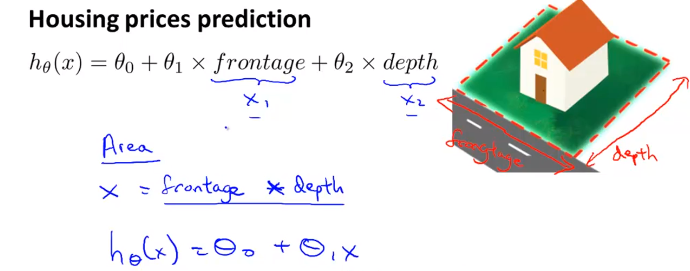 Housing prices prediction
hθ(x) = θ0 + θ1 × frontage + θ2 × depth
x1
x2
frontage
depth
Area
x = frontage * depth
hθ(x) = θ0 + θ1 x